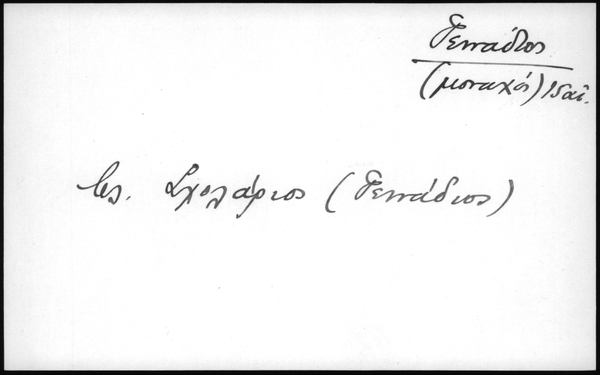 Γεννάδιος
(μοναχός) 15 αἰ.
βλ. Σχολάριος (Γεννάδιος)